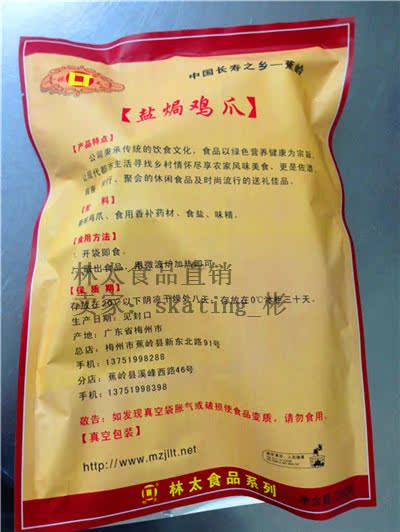 中国长寿之乡—蕉岭
【盐焗鸡爪】
【产品特点】
公司秉承传统的饮食文化，食品以绿色营养健康为宗旨，
让现代都市生活寻找乡村情怀尽享农家风味美食，更是佐酒
旅行、聚会的休闲食品及时尚流行的送礼佳品。
料】
鸡爪、食用香补药材、食盐、味精。
【食用方法】
开袋即食。
食品，用微波炉加热即可。
林太食品直销
【保质期】
存放在20°以下阴凉干燥处八天，存放在0℃冰柜三十天。
skating_彬
生产日期：见封口
产地：广东省梅州市
总店：梅州市蕉岭县新东北路91号
手机：13751998288
分店：蕉岭县溪峰西路46号
手机：13751998398
敬告：如发现真空袋胀气或破损使食品变质，请勿食用。
【真空包装】
http://www.mzjllt.net
林太食品系列